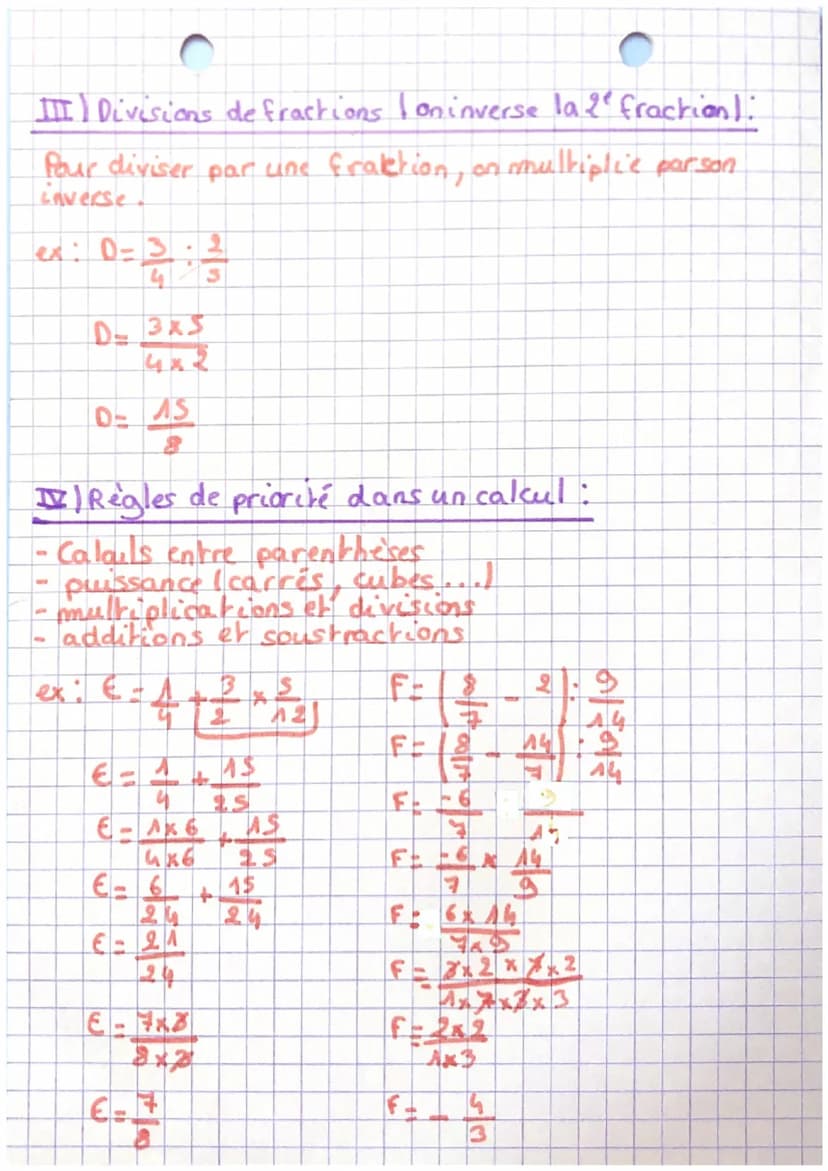 III) Divisions de fractions (on inverse la 2e fraction):
Pour diviser par une fraktion, on multiplie par son
inverse.
ex: D= 3/4 : 2/5
D= 3x5 / 4x2
D= 15/8
IV) Règles de priorité dans un calcul :
- Calculs entre parenthèses
- puissance (carrés, cubes...)
- multiplications et divisions
- additions et soustractions
ex: E = 1/4 + 3/2 x 5/12
E = 1/4 + 15/25
E = 1x6 / 4x6 + 15/25
E = 6/24 + 15/24
E = 21/24
E = 7x3 / 8x3
E = 7/8
F= (8/7 - 2) : 9/14
F= (8/7 - 14/7) : 9/14
F= -6/7
F= -6/7 x 14/9
F= 6x14 / 7x9
F= 3x2x7x2 / 1x7x3x3
F= 2x2 / 1x3
F= - 4/3